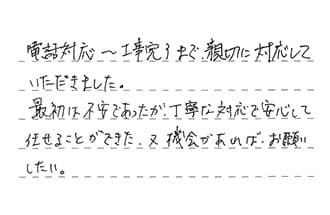 電話対応〜工事完了まで、親切に対応して
いただきました。
最初は不安であったが、丁寧な対応で安心して
任せることができた。又機会があれば、お願い
したい。